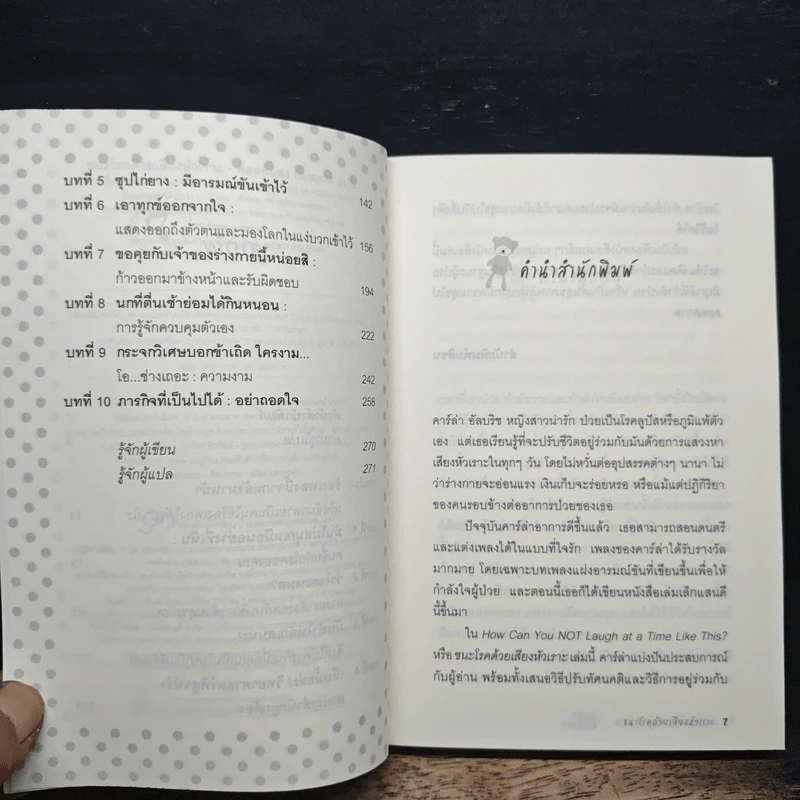 บทที่ 5 ซุปไก่ยาง : มีอารมณ์ขันเข้าไว้ 142
บทที่ 6 เอาทุกข์ออกจากใจ :
แสดงออกถึงตัวตนและมองโลกในแง่บวกเข้าไว้ 156
บทที่ 7 ขอคุยกับเจ้าของร่างกายนี้หน่อยสิ :
ก้าวออกมาข้างหน้าและรับผิดชอบ 194
บทที่ 8 นกที่ตื่นเช้าย่อมได้กินหนอน :
การรู้จักควบคุมตัวเอง 222
บทที่ 9 กระจกวิเศษบอกข้าเถิด ใครงาม...
โอ...ช่างเถอะ : ความงาม 242
บทที่ 10 ภารกิจที่เป็นไปได้ : อย่าถอดใจ 258
รู้จักผู้เขียน 270
รู้จักผู้แปล 271
คำนำสำนักพิมพ์
คาร์ล่า อัลบริช หญิงสาวน่ารัก ป่วยเป็นโรคลูปัสหรือภูมิแพ้ตัว
เอง แต่เธอเรียนรู้ที่จะปรับชีวิตอยู่ร่วมกับมันด้วยการแสวงหา
เสียงหัวเราะในทุกๆ วัน โดยไม่หวั่นต่ออุปสรรคต่างๆ นานา ไม่
ว่าร่างกายจะอ่อนแรง เงินเก็บจะร่อยหรอ หรือแม้แต่ปฏิกิริยา
ของคนรอบข้างต่ออาการป่วยของเธอ
ปัจจุบันคาร์ล่าอาการดีขึ้นแล้ว เธอสามารถสอนดนตรี
และแต่งเพลงได้ในแบบที่ใจรัก เพลงของคาร์ล่าได้รับรางวัล
มากมาย โดยเฉพาะบทเพลงแฝงอารมณ์ขันที่เขียนขึ้นเพื่อให้
กำลังใจผู้ป่วย และตอนนี้เธอก็ได้เขียนหนังสือเล่มเล็กแสนดี
นี้ขึ้นมา
ใน How Can You NOT Laugh at a Time Like This?
หรือ ชนะโรคด้วยเสียงหัวเราะ เล่มนี้ คาร์ล่าแบ่งปันประสบการณ์
กับผู้อ่าน พร้อมทั้งเสนอวิธีปรับทัศนคติและวิธีการอยู่ร่วมกับ
7